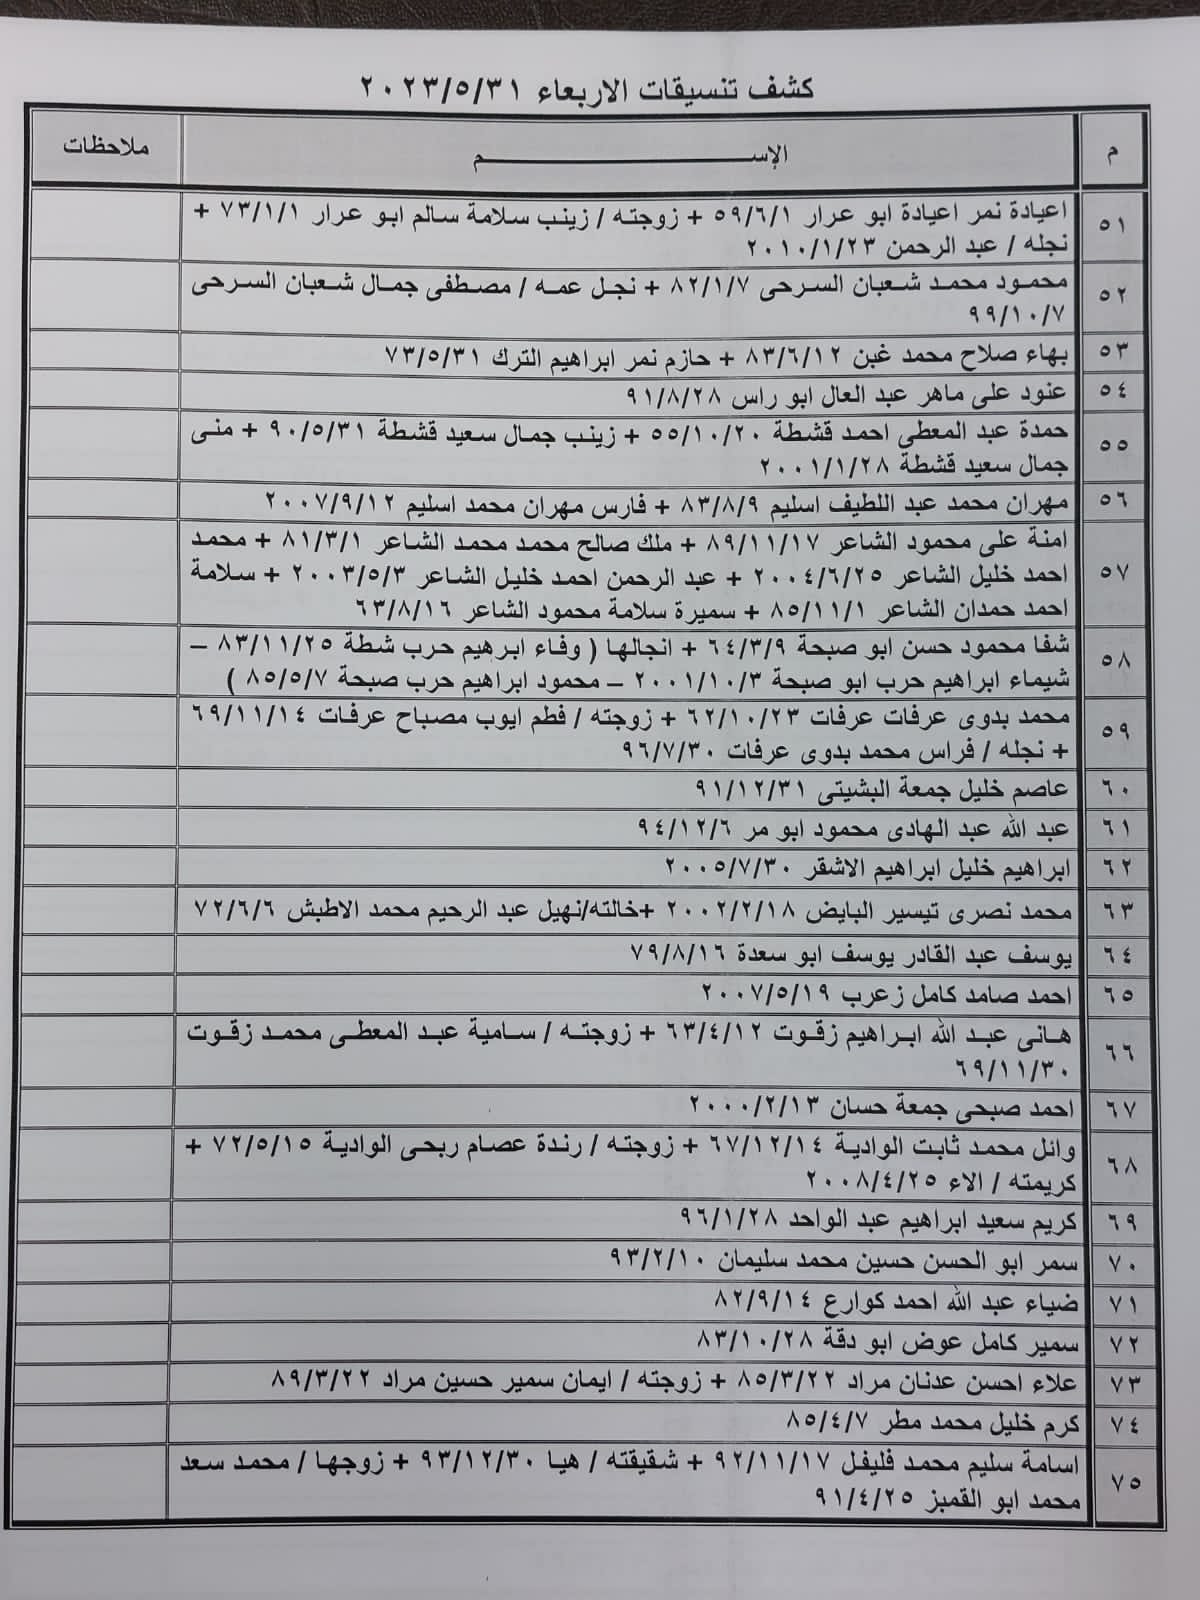 كشف تنسيقات الاربعاء ٢٠٢٣/٥/٣١
م الإســــــــم ملاحظات
٥١ اعيادة نمر اعيادة ابو عرار ٥٩/٦/١ + زوجته / زينب سلامة سالم ابو عرار ٧٣/١/١ +
نجله / عبد الرحمن ٢٠١٠/١/٢٣
٥٢ محمود محمد شعبان السرحى ٨٢/١/٧ + نجل عمه / مصطفى جمال شعبان السرحى
٩٩/١٠/٧
٥٣ بهاء صلاح محمد غبن ٨٣/٦/١٢ + حازم نمر ابراهيم الترك ٧٣/٥/٣١
٥٤ عنود على ماهر عبد العال ابو راس ٩١/٨/٢٨
٥٥ حمدة عبد المعطى احمد قشطة ٥٥/١٠/٢٠ + زينب جمال سعيد قشطة ٩٠/٥/٣١ + منى
جمال سعيد قشطة ٢٠٠١/١/٢٨
٥٦ مهران محمد عبد اللطيف اسليم ٨٣/٨/٩ + فارس مهران محمد اسليم ٢٠٠٧/٩/١٢
٥٧ امنة على محمود الشاعر ٨٩/١١/١٧ + ملك صالح محمد محمد الشاعر ٨١/٣/١ + محمد
احمد خليل الشاعر ٢٠٠٤/٦/٢٥ + عبد الرحمن احمد خليل الشاعر ٢٠٠٣/٥/٣ + سلامة
احمد حمدان الشاعر ٨٥/١١/١ + سميرة سلامة محمود الشاعر ٦٣/٨/١٦
٥٨ شفا محمود حسن ابو صبحة ٦٤/٣/٩ + انجالها ( وفاء ابرهيم حرب شطة ٨٣/١١/٢٥ –
شيماء ابراهيم حرب ابو صبحة ٢٠٠١/١٠/٣ – محمود ابراهيم حرب صبحة ٨٥/٥/٧ )
٥٩ محمد بدوى عرفات عرفات ٦٢/١٠/٢٣ + زوجته / فطم ايوب مصباح عرفات ٦٩/١١/١٤
+ نجله / فراس محمد بدوى عرفات ٩٦/٧/٣٠
٦٠ عاصم خليل جمعة البشيتى ٩١/١٢/٣١
٦١ عبد الله عبد الهادى محمود ابو مر ٩٤/١٢/٦
٦٢ ابراهيم خليل ابراهيم الاشقر ٢٠٠٥/٧/٣٠
٦٣ محمد نصرى تيسير البايض ٢٠٠٢/٢/١٨ +خالته/نهيل عبد الرحيم محمد الاطبش ٧٢/٦/٦
٦٤ يوسف عبد القادر يوسف ابو سعدة ٧٩/٨/١٦
٦٥ احمد صامد كامل زعرب ٢٠٠٧/٥/١٩
٦٦ هانى عبد الله ابراهيم زقوت ٦٣/٤/١٢ + زوجته / سامية عبد المعطى محمد زقوت
٦٩/١١/٣٠
٦٧ احمد صبحى جمعة حسان ٢٠٠٠/٢/١٣
٦٨ وائل محمد ثابت الوادية ٦٧/١٢/١٤ + زوجته / رندة عصام ربحى الوادية ٧٢/٥/١٥ +
كريمته / الاء ٢٠٠٨/٤/٢٥
٦٩ كريم سعيد ابراهيم عبد الواحد ٩٦/١/٢٨
٧٠ سمر ابو الحسن حسين محمد سليمان ٩٣/٢/١٠
٧١ ضياء عبد الله احمد كوارع ٨٢/٩/١٤
٧٢ سمير كامل عوض ابو دقة ٨٣/١٠/٢٨
٧٣ علاء احسن عدنان مراد ٨٥/٣/٢٢ + زوجته / ايمان سمير حسين مراد ٨٩/٣/٢٢
٧٤ كرم خليل محمد مطر ٨٥/٤/٧
٧٥ اسامة سليم محمد فليفل ٩٢/١١/١٧ + شقيقته / هيا ٩٣/١٢/٣٠ + زوجها / محمد سعد
محمد ابو القمبز ٩١/٤/٢٥